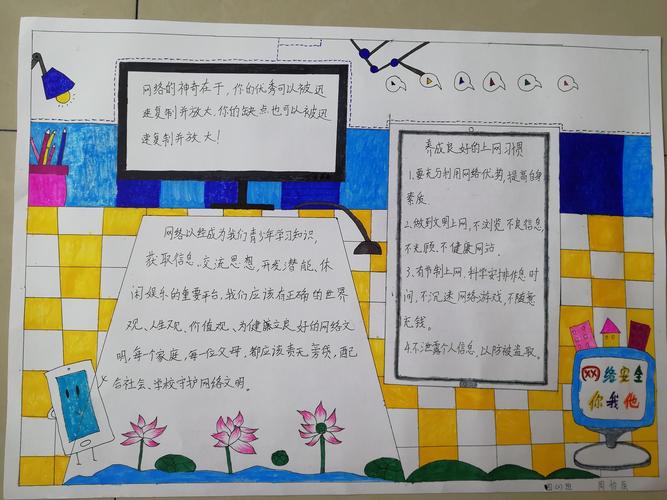 网络的神奇在于，你的优秀可以被迅
速复制并放大，你的缺点也可以被迅
速复制并放大！
网络以经成为我们青少年学习知识，
获取信息、交流思想，开发潜能、休
闲娱乐的重要平台，我们应该有正确的世界
观、人生观、价值观、为健康良好的网络文
明，每个家庭，每一位父母，都应该责无旁贷，配
合社会、学校守护网络文明。
养成良好的上网习惯
1.要充分利用网络优势，提高自身
素质。
2.做到文明上网，不浏览不良信息，
不光顾不健康网站。
3.有节制上网，科学安排作息时
间，不沉迷网络游戏，不随意
花钱。
4.不泄露个人信息，以防被盗取。
网络安全
你我他